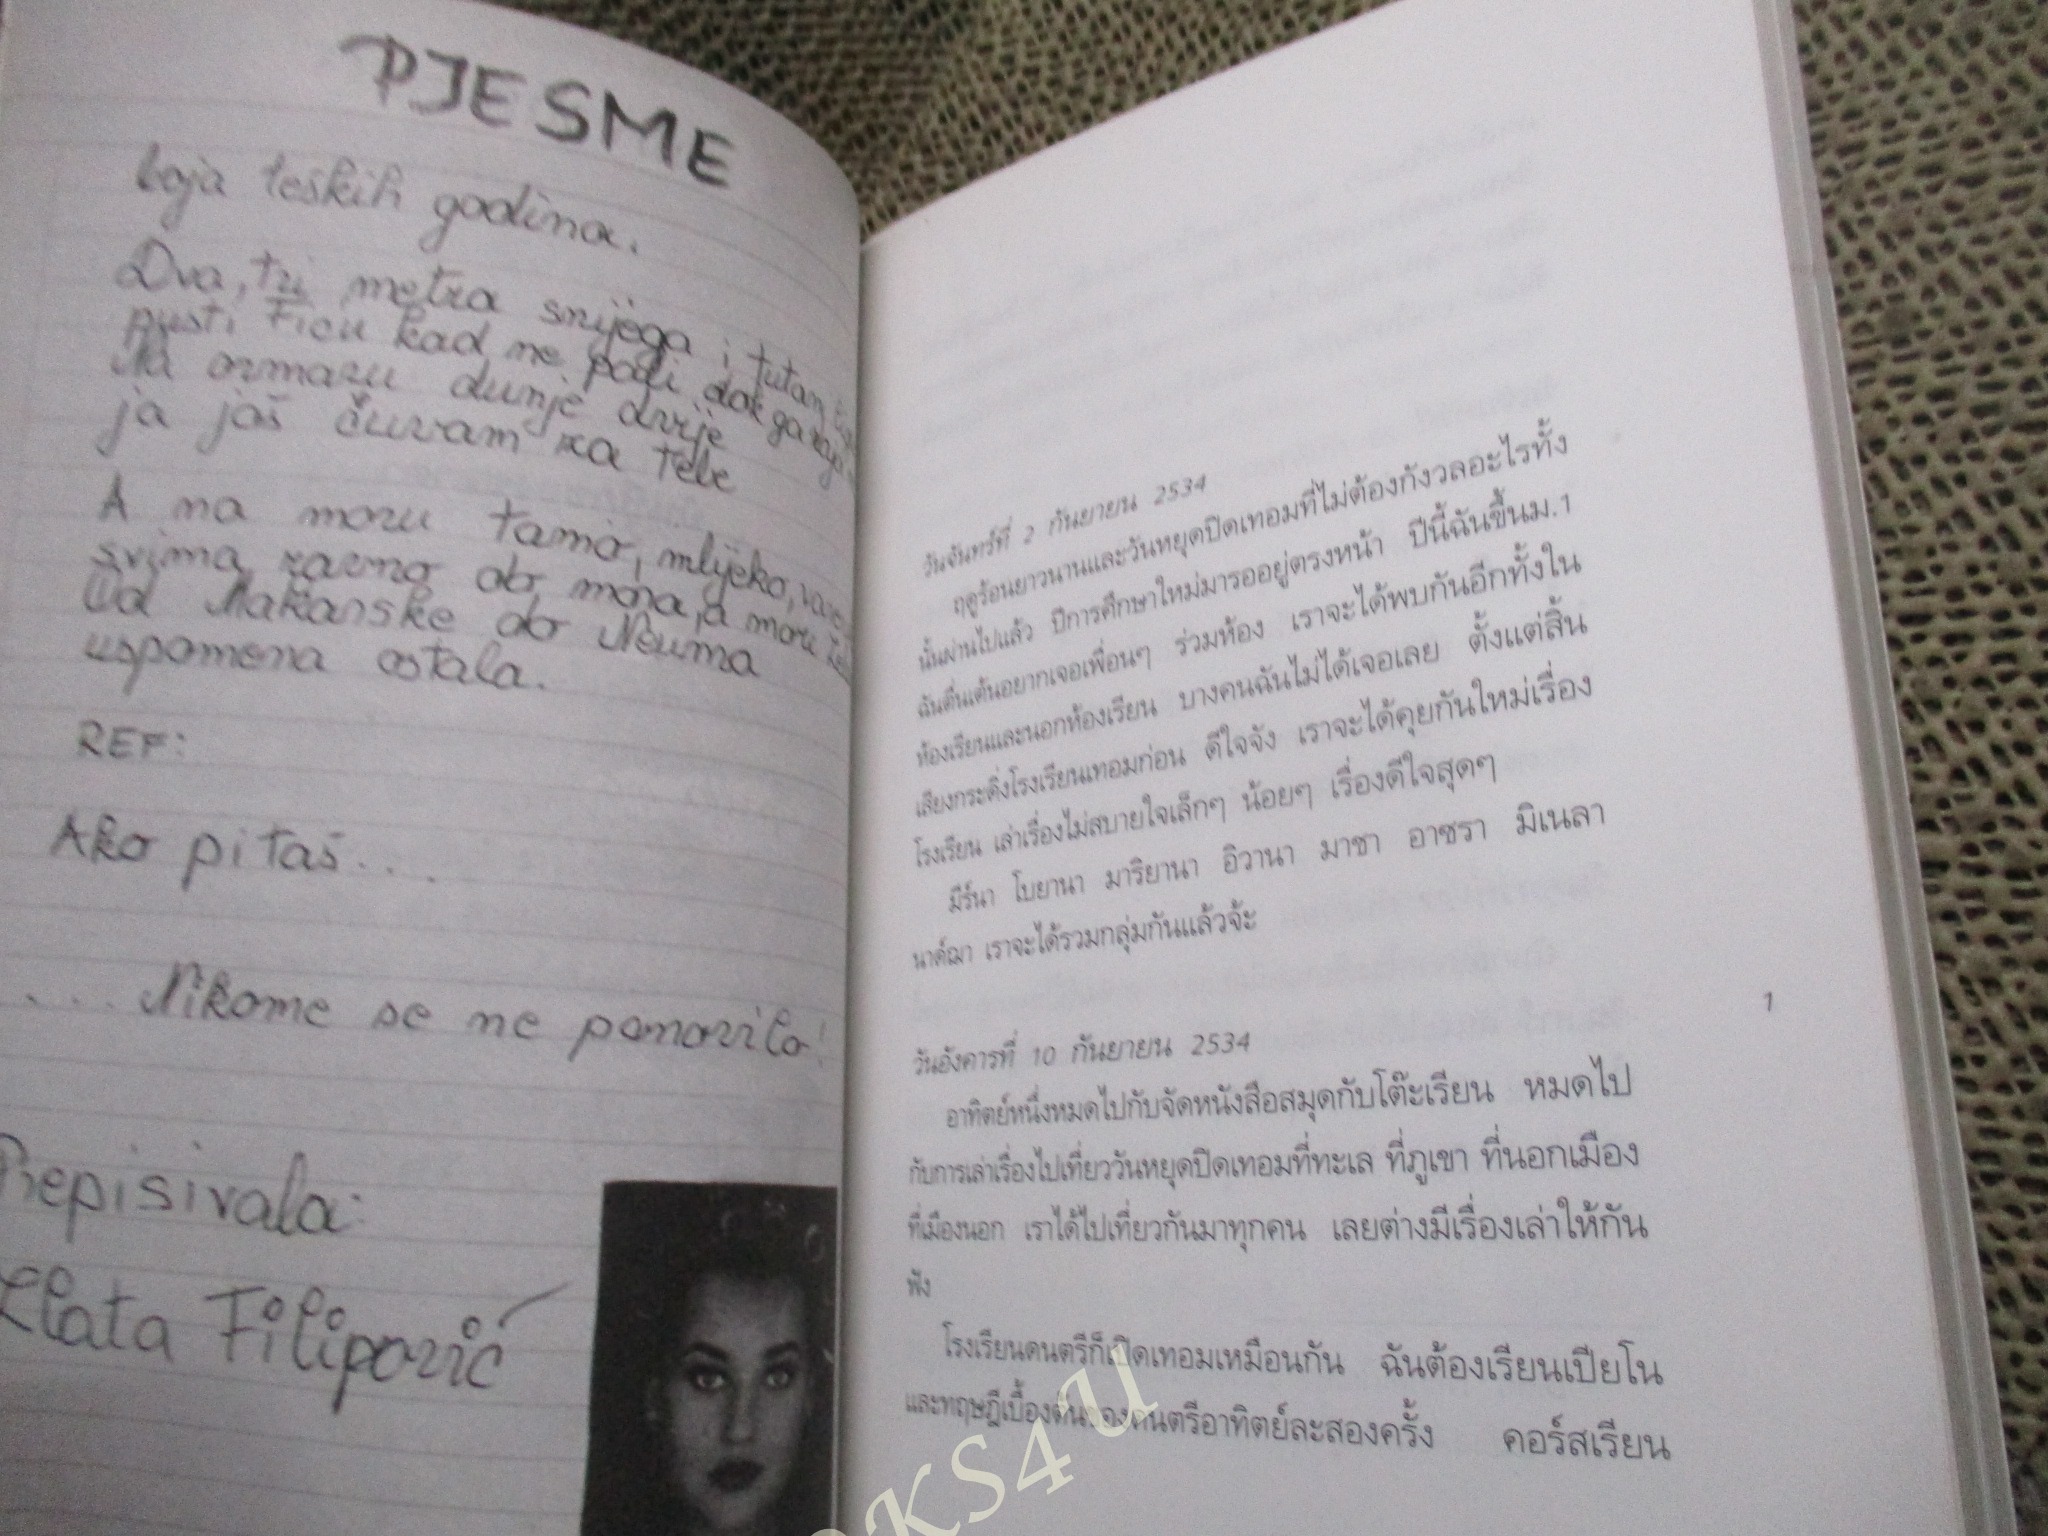 PJESME
boja teških godina.
Dva, tri metra snijega i tutanj
pusti Fiću kad ne pali dok ga
Na ormaru dunje dvije
ja još čuvam za tebe
A na moru tamo, mlijeko,
svima ravno do mora, a moru
Od Makarske do Neuma
uspomena ostala.
REF:
Ako pitaš...
... Nikome se ne ponovilo!
Prepisivala:
Zlata Filipović
วันจันทร์ที่ 2 กันยายน 2534
ฤดูร้อนยาวนานและวันหยุดปิดเทอมที่ไม่ต้องกังวลอะไรทั้ง
นั้นผ่านไปแล้ว ปีการศึกษาใหม่มารออยู่ตรงหน้า ปีนี้ฉันขึ้นม.1
ฉันตื่นเต้นอยากเจอเพื่อนๆ ร่วมห้อง เราจะได้พบกันอีกทั้งใน
ห้องเรียนและนอกห้องเรียน บางคนฉันไม่ได้เจอเลย ตั้งแต่สิ้น
เสียงกระดิ่งโรงเรียนเทอมก่อน ดีใจจัง เราจะได้คุยกันใหม่เรื่อง
โรงเรียน เล่าเรื่องไม่สบายใจเล็กๆ น้อยๆ เรื่องดีใจสุดๆ
มีร์นา โบยานา มาริยานา อิวานา มาชา อาซรา มิเนลา
นาด์ฌา เราจะได้รวมกลุ่มกันแล้วจ้ะ
1
วันอังคารที่ 10 กันยายน 2534
อาทิตย์หนึ่งหมดไปกับจัดหนังสือสมุดกับโต๊ะเรียน หมดไป
กับการเล่าเรื่องไปเที่ยววันหยุดปิดเทอมที่ทะเล ที่ภูเขา ที่นอกเมือง
ที่เมืองนอก เราได้ไปเที่ยวกันมาทุกคน เลยต่างมีเรื่องเล่าให้กัน
ฟัง
โรงเรียนดนตรีก็เปิดเทอมเหมือนกัน ฉันต้องเรียนเปียโน
และทฤษฎีเบื้องต้นของดนตรีอาทิตย์ละสองครั้ง คอร์สเรียน
OKS4U